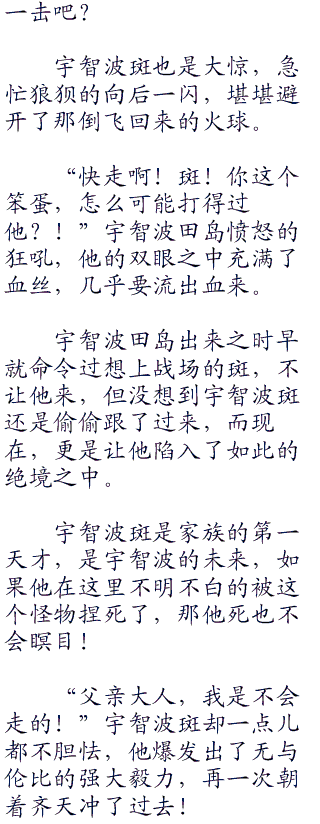 一击吧？
宇智波斑也是大惊，急
忙狼狈的向后一闪，堪堪避
开了那倒飞回来的火球。
“快走啊！斑！你这个
笨蛋，怎么可能打得过
他？！”宇智波田岛愤怒的
狂吼，他的双眼之中充满了
血丝，几乎要流出血来。
宇智波田岛出来之时早
就命令过想上战场的斑，不
让他来，但没想到宇智波斑
还是偷偷跟了过来，而现
在，更是让他陷入了如此的
绝境之中。
宇智波斑是家族的第一
天才，是宇智波的未来，如
果他在这里不明不白的被这
个怪物捏死了，那他死也不
会瞑目！
“父亲大人，我是不会
走的！”宇智波斑却一点儿
都不胆怯，他爆发出了无与
伦比的强大毅力，再一次朝
着齐天冲了过去！